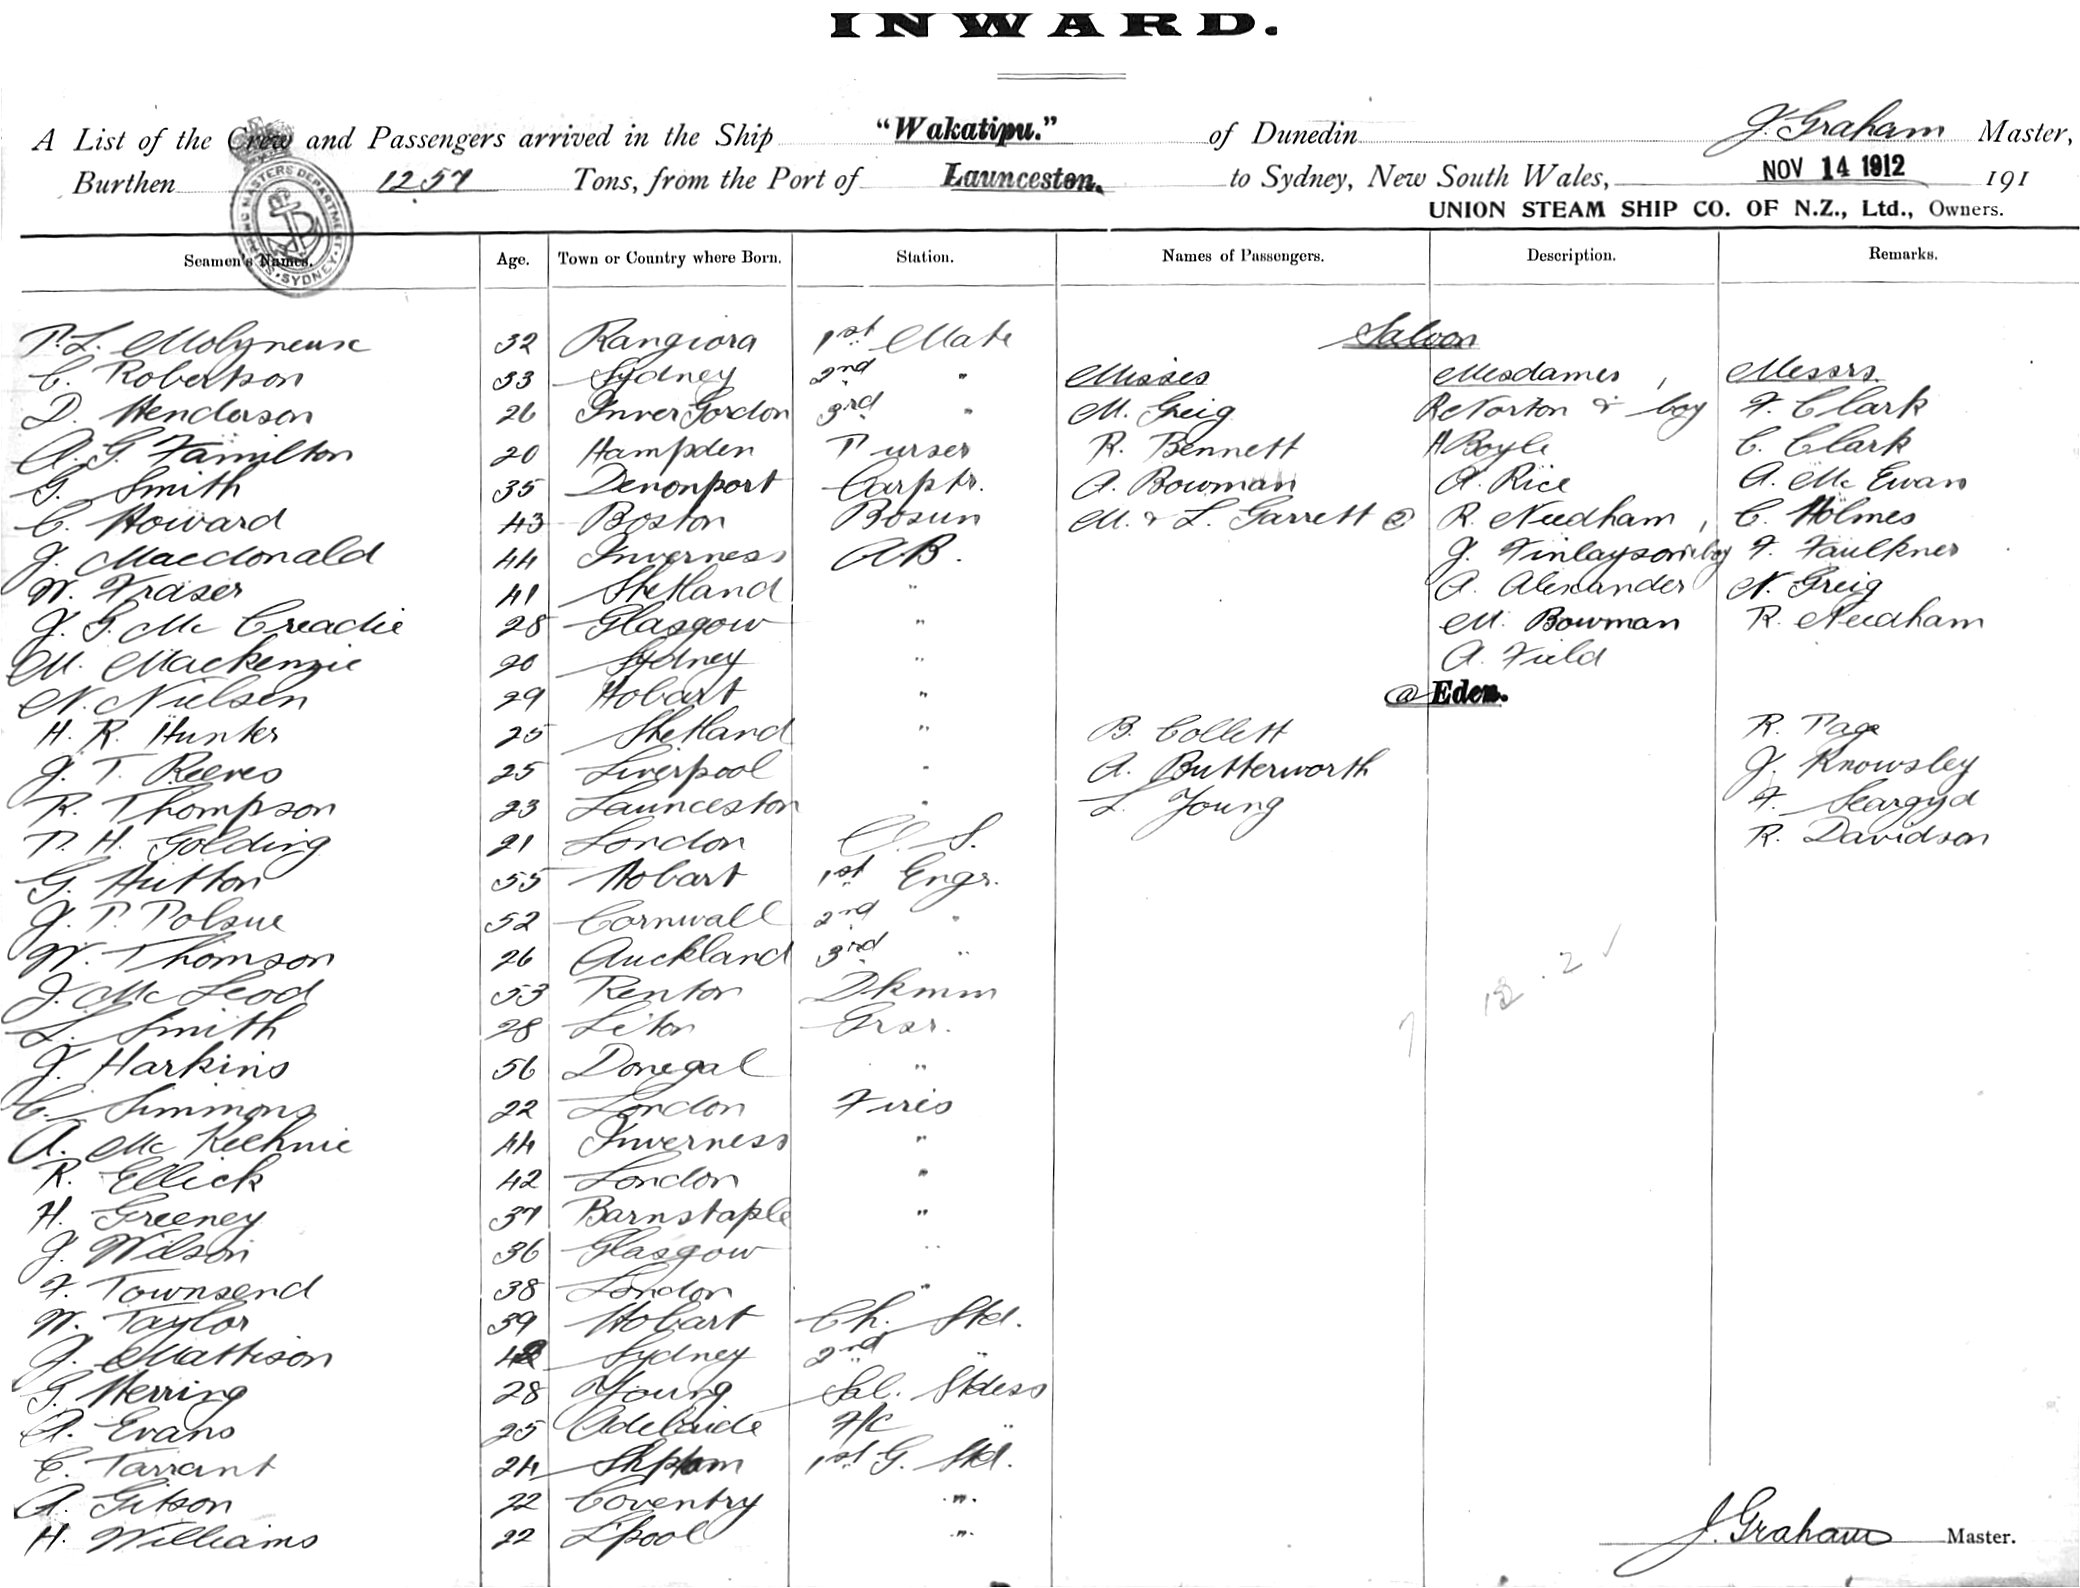 INWARD.
A List of the Crew and Passengers arrived in the Ship "Wakatipu." of Dunedin J. Graham Master,
Burthen 1257 Tons, from the Port of Launceston. to Sydney, New South Wales, NOV 14 1912 191
UNION STEAM SHIP CO. OF N.Z., Ltd., Owners.
SHIPPING MASTERS DEPARTMENT SYDNEY
Seamen's Names. Age. Town or Country where Born. Station. Names of Passengers. Description. Remarks.
P. L. Molyneux 32 Rangiora 1st Mate Saloon
C. Robertson 33 Sydney 2nd " Misses Mesdames, Messrs.
D. Henderson 26 InverGordon 3rd " M. Greig R Norton & boy F. Clark
A. G. Familton 20 Hampden Purser R. Bennett H Boyle C. Clark
G. Smith 35 Devonport Carptr. A. Bowman A. Rice A. Mc Ewan
C. Howard 43 Boston Bosun M. & L. Garrett @ R. Needham, C. Holmes
J. Macdonald 44 Inverness AB. J. Finlayson & boy F. Faulkner
W. Fraser 41 Shetland " A. Alexander N. Greig
J. G. Mc Creadie 28 Glasgow " M. Bowman R. Needham
M. Mackenzie 20 Sydney " A. Field
N. Nielsen 29 Hobart " @ Eden.
H. R. Hunter 25 Shetland " B. Collett R. Page
J. T. Reeves 25 Liverpool " A. Butterworth J. Knowsley
R. Thompson 23 Launceston " L. Young F. Seargyd
P. H. Golding 21 London O. S. R. Davidson
G. Hutton 55 Hobart 1st Engr.
J. P. Polsue 52 Cornwall 2nd "
W. Thomson 26 Auckland 3rd "
J. Mc Leod 53 Renton Dkmm
L. Smith 28 Leiton Grsr.
J. Harkins 56 Donegal "
C. Simmons 22 London Fires
A. Mc Kechnie 44 Inverness "
R. Ellick 42 London "
H. Greeney 37 Barnstaple "
J. Wilson 36 Glasgow "
F. Townsend 38 London "
W. Taylor 39 Hobart Ch. Std.
J. Mattison Sydney 2nd "
G. Herring 28 Young Sal. Stdess
A. Evans 25 Adelaide F/C "
C. Tarrant 24 Shptom 1st G. Std.
A. Gitson 22 Coventry "
H. Williams 22 L'pool "
J. Graham Master.